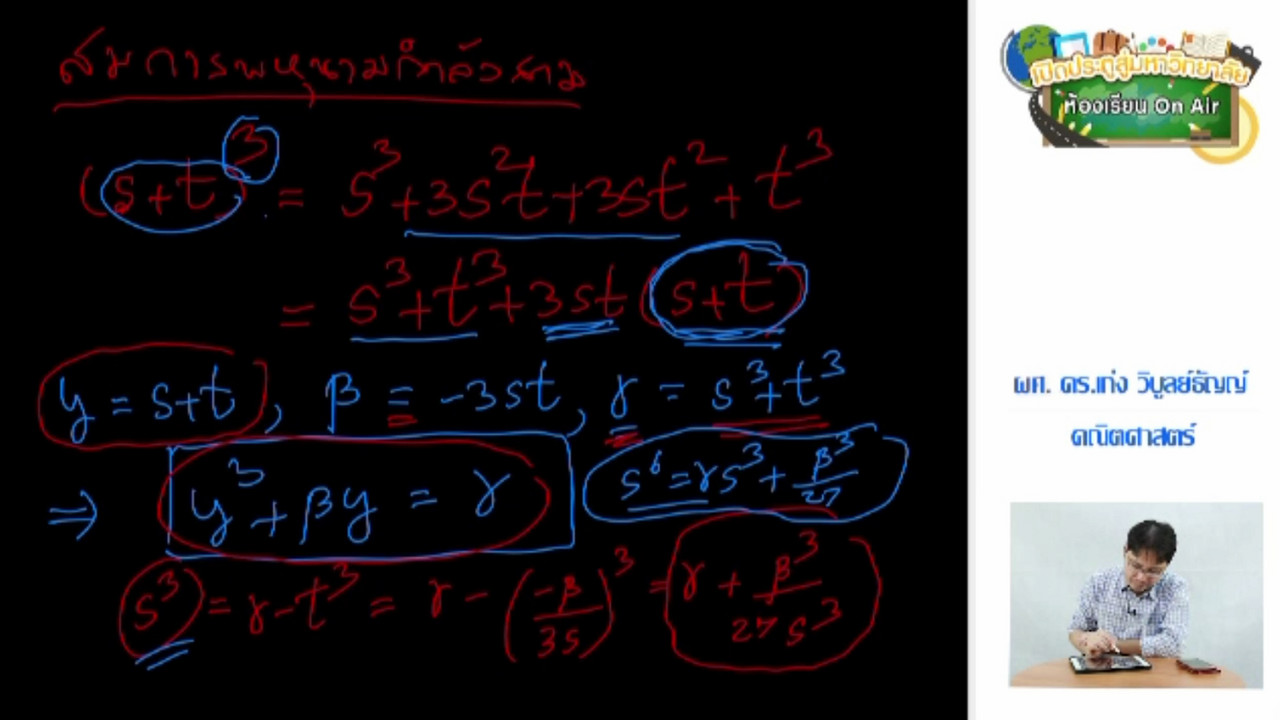 สมการพหุนามกำลังสาม
(s+t)³ = s³+3s²t+3st²+t³
= s³+t³+3st(s+t)
y = s+t, β = -3st, γ = s³+t³
⇒ y³+βy = γ
s⁶=γs³+β³/27
s³ = γ-t³ = γ-(-β/3s)³ = γ+β³/27s³
เปิดประตูสู่มหาวิทยาลัย
ห้องเรียน On Air
ผศ. ดร.เก่ง วิบูลย์ธัญญ์
คณิตศาสตร์